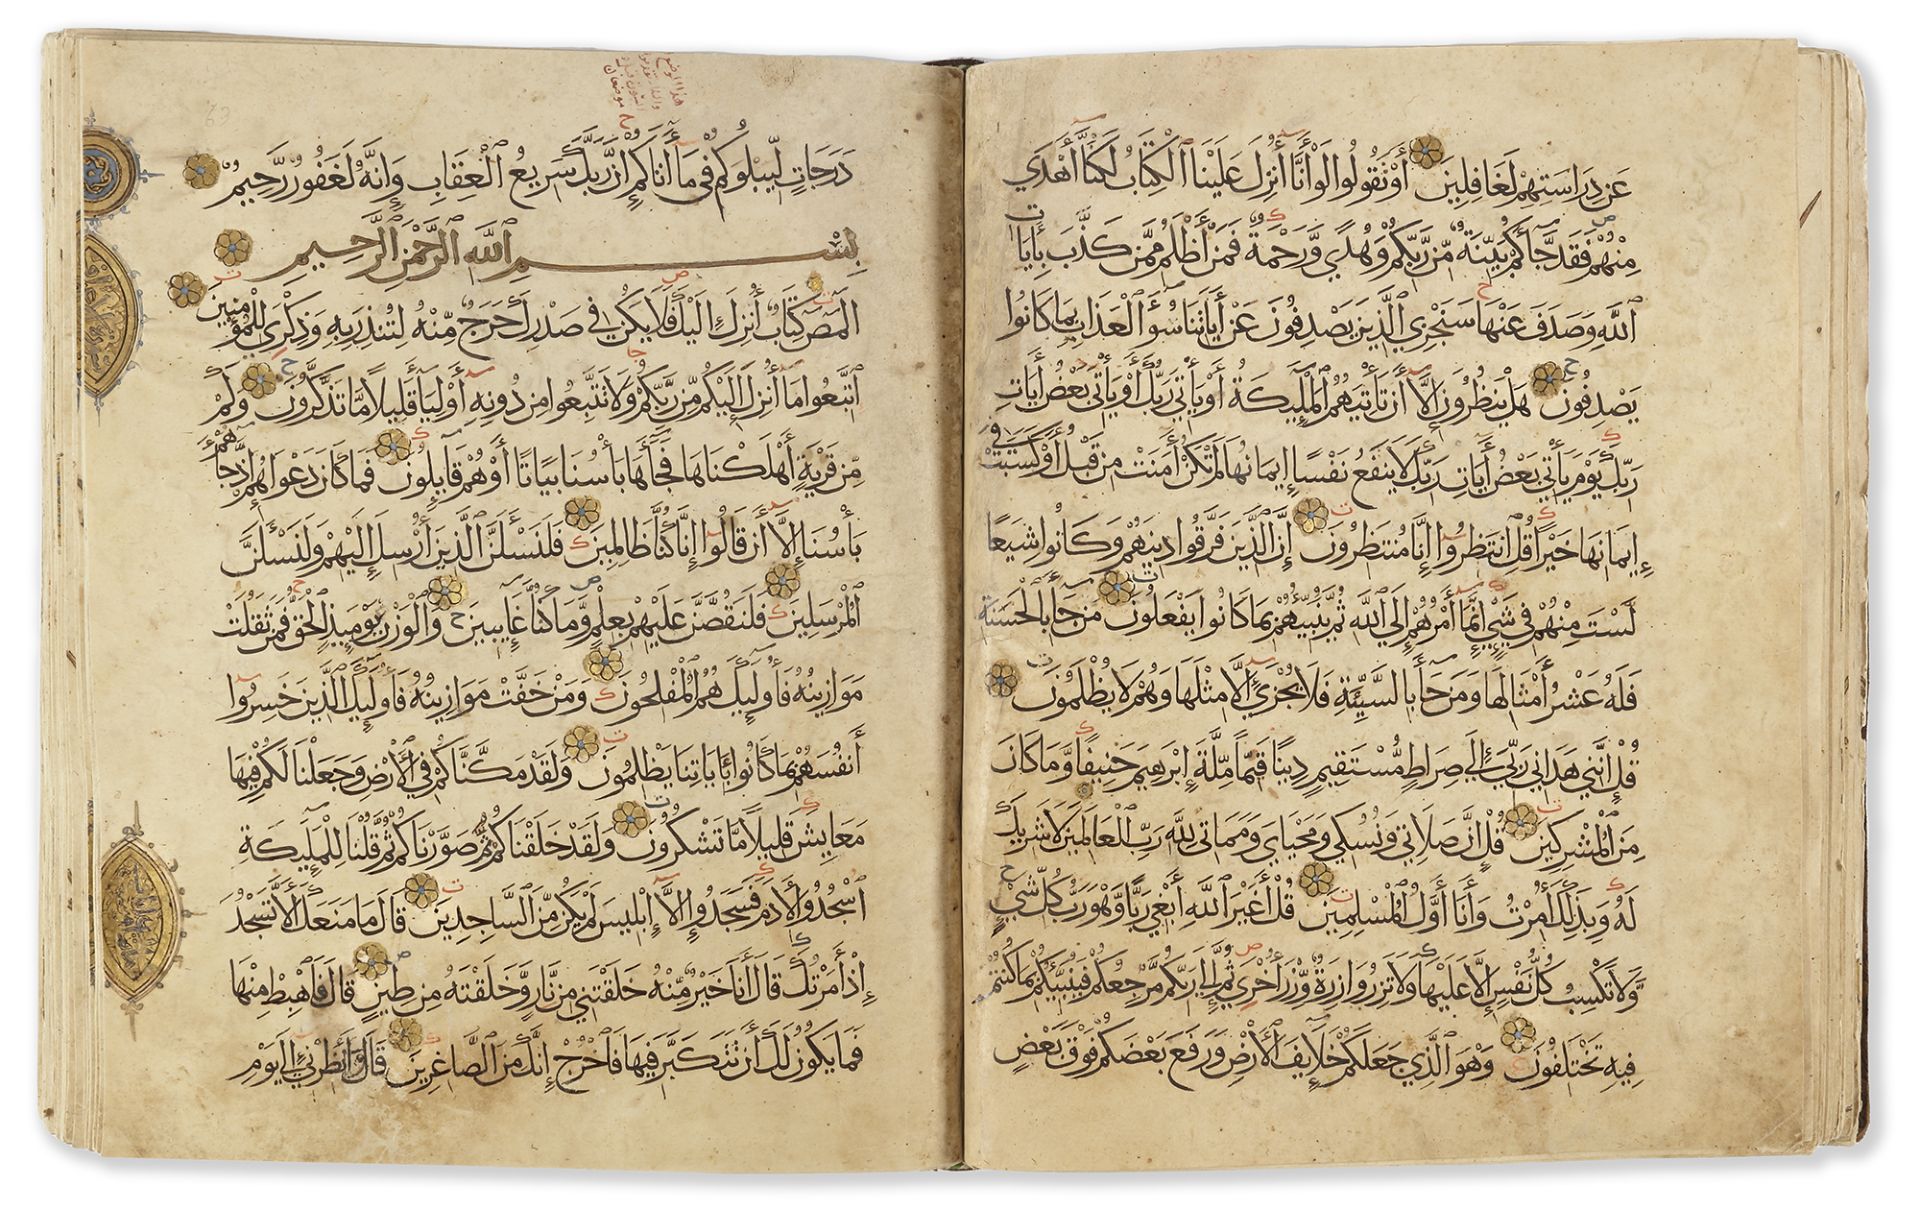 عن دراستهم لغافلين أو تقولوا لو أنا أنزل علينا الكتاب لكنا أهدى
منهم فقد جاكم بينة من ربكم وهدى ورحمة فمن أظلم ممن كذب بايات
الله وصدف عنها سنجزي الذين يصدفون عن آياتنا سوء العذاب بما كانوا
يصدفون هل ينظرون إلا أن تأتيهم الملئكة أو يأتي ربك أو يأتي بعض آيات
ربك يوم يأتي بعض آيات ربك لا ينفع نفسا إيمانها لم تكن آمنت من قبل أو كسبت في
إيمانها خيرا قل انتظروا إنا منتظرون إن الذين فرقوا دينهم وكانوا شيعا
لست منهم في شيء إنما أمرهم إلى الله ثم ينبئهم بما كانوا يفعلون من جآ بالحسنة
فله عشر أمثالها ومن جآ بالسيئة فلا يجزى إلا مثلها وهم لا يظلمون
قل إنني هداني ربي إلى صراط مستقيم دينا قيما ملة إبرهيم حنيفا وما كان
من المشركين قل إن صلاتي ونسكي ومحياي ومماتي لله رب العالمين لا شريك
له وبذلك أمرت وأنا أول المسلمين قل أغير الله أبغي ربا وهو رب كل شيء
ولا تكسب كل نفس إلا عليها ولا تزر وازرة وزر أخرى ثم إلى ربكم مرجعكم فينبئكم بما كنتم
فيه تختلفون وهو الذي جعلكم خلآيف الأرض ورفع بعضكم فوق بعض
درجات ليبلوكم في ما آتاكم إن ربك سريع العقاب وإنه لغفور رحيم
بسم الله الرحمن الرحيم
المص كتاب أنزل إليك فلا يكن في صدرك حرج منه لتنذر به وذكرى للمؤمنين
اتبعوا ما أنزل إليكم من ربكم ولا تتبعوا من دونه أوليآ قليلا ما تذكرون وكم
من قرية أهلكناها فجآها بأسنا بياتا أو هم قايلون فما كان دعواهم إذ جآهم
بأسنا إلا أن قالوا إنا كنا ظالمين فلنسئلن الذين أرسل إليهم ولنسئلن
المرسلين فلنقصن عليهم بعلم وما كنا غايبين والوزن يوميذ الحق فمن ثقلت
موازينه فأوليك هم المفلحون ومن خفت موازينه فأوليك الذين خسروا
أنفسهم بما كانوا بآياتنا يظلمون ولقد مكناكم في الأرض وجعلنا لكم فيها
معايش قليلا ما تشكرون ولقد خلقناكم ثم صورناكم ثم قلنا للمليكة
اسجدوا لآدم فسجدوا إلا إبليس لم يكن من الساجدين قال ما منعك ألا تسجد
إذ أمرتك قال أنا خير منه خلقتني من نار وخلقته من طين قال فاهبط منها
فما يكون لك أن تتكبر فيها فاخرج إنك من الصاغرين قال أنظرني إلى يوم